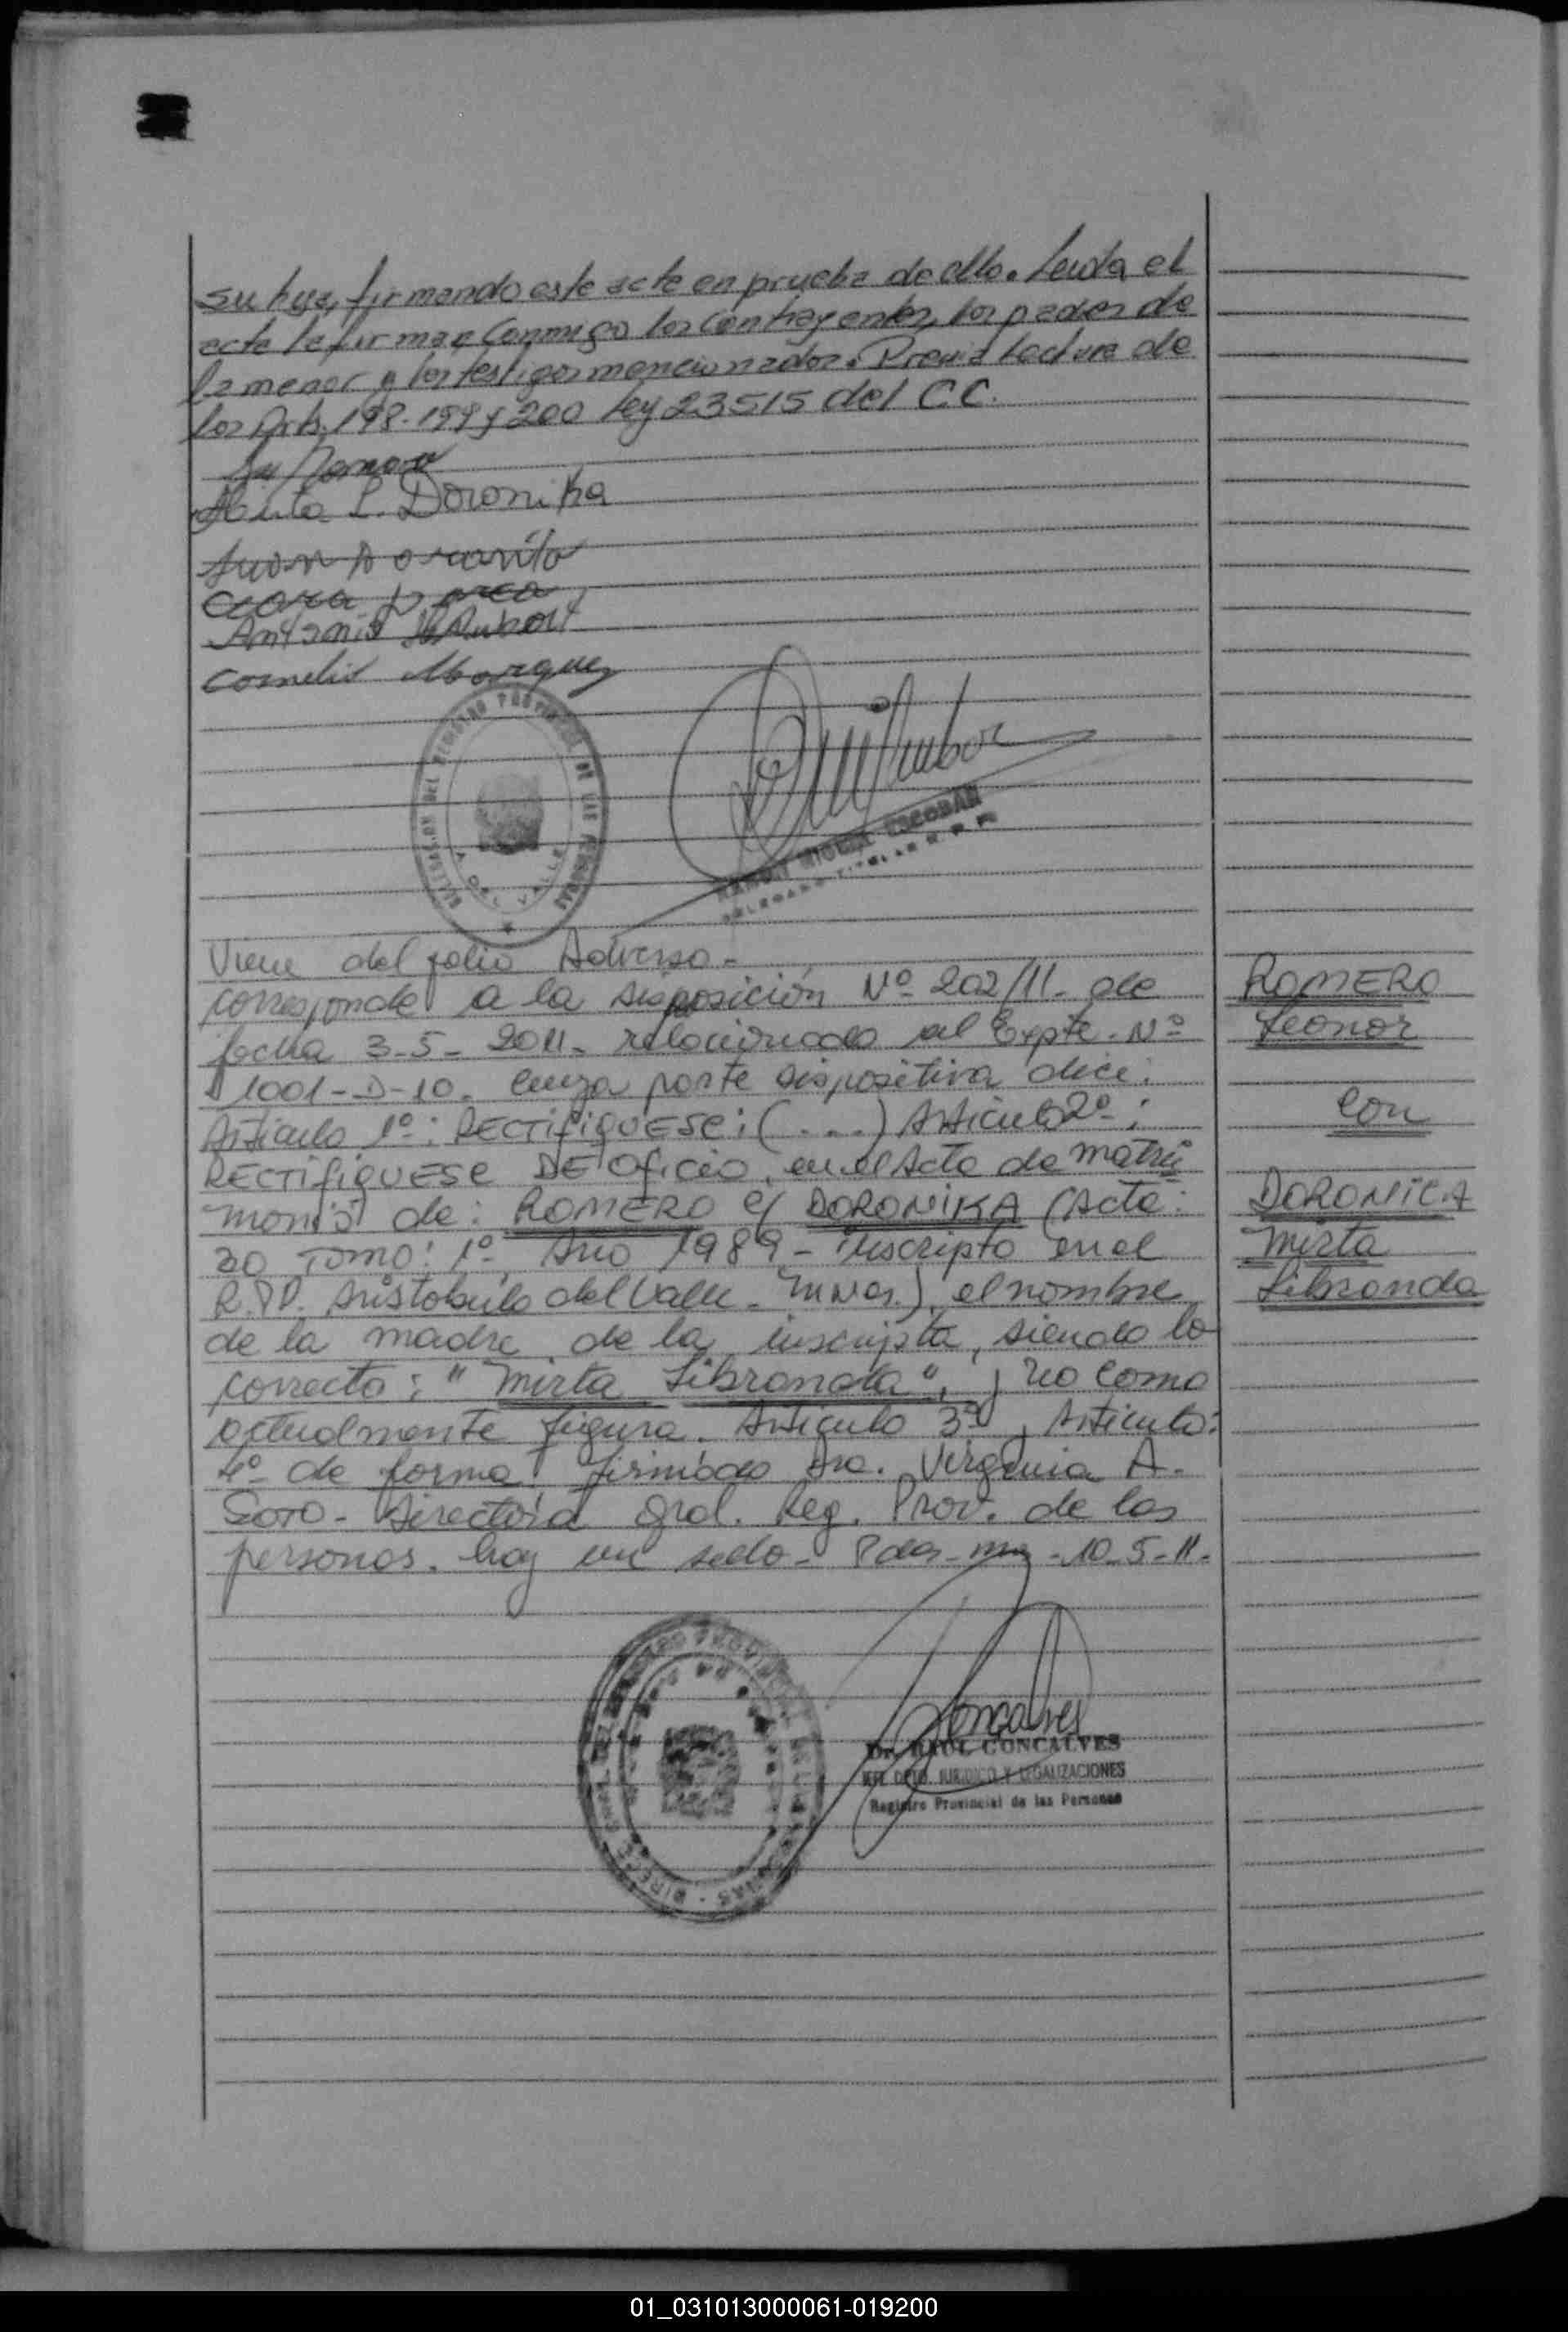 su hija, firmando este acte en prueba de ello. Leida el
acte la firman conmigo los contrayentes, los padres de
la menor y los testigos mencionados. Previa lectura de
los Arts. 198-199 y 200 Ley 23515 del C.C.
Mirta L. Doronika
Antonio
Cornelio Marquez
DELEGACION DEL REGISTRO PROVINCIAL DE LAS PERSONAS
A DEL VALLE
RAMON MIGUEL ESCOBAR
DELEGADO TITULAR R.P.P.
Viene del folio Adverso -
corresponde a la disposición Nº 202/11 - de
fecha 3-5-2011 - relacionado al Expte. Nº
1001-D-10. Cuya parte dispositiva dice:
Articulo 1º: RECTIFIQUESE: (...) Articulo 2º:
RECTIFIQUESE DE Oficio, en el Acta de matri
monio de: ROMERO c/ DORONIKA (Acta:
30 Tomo: 1º Año 1989 - inscripto en el
R.P.P. Aristobulo del Valle - Mnes.), el nombre
de la madre de la inscripta, siendo lo
correcto: "Mirta Libranda", y no como
actualmente figura. Articulo 3º, Articulo:
4º de forma. firmado Dra. Virginia A.
Soto - Directora Gral. Reg. Prov. de las
personas. hay un sello - Pdas - mnes - 10-5-11.
ROMERO
Leonor
con
DORONICA
Mirta
Libranda
Goncalves
Dr. RAUL GONCALVES
JEFE DPTO. JURIDICO Y LEGALIZACIONES
Registro Provincial de las Personas
01_031013000061-019200